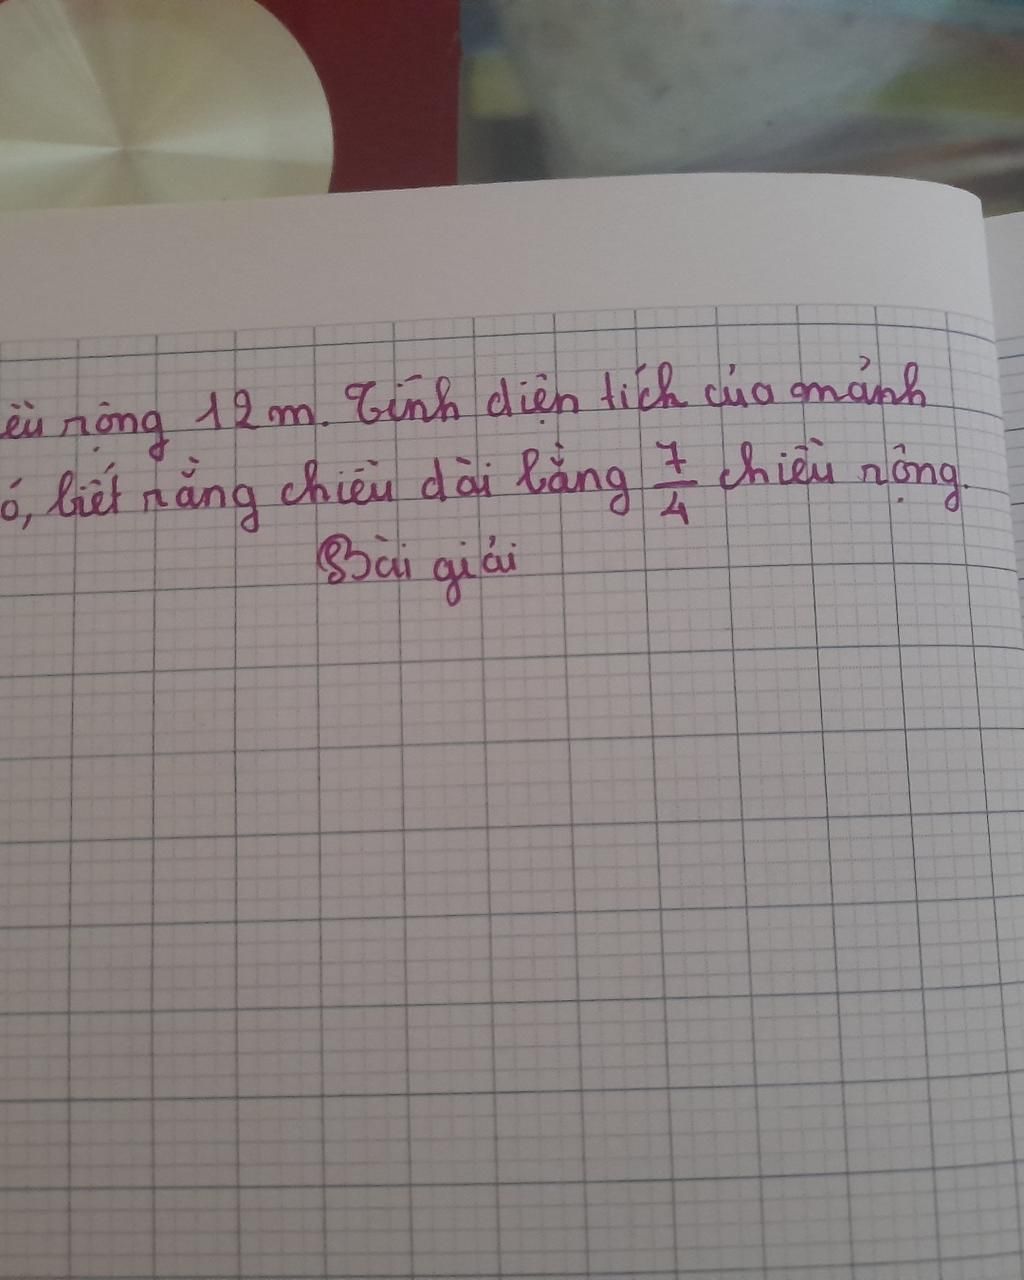 rộng 12 m. Tính diện tích của mảnh
biết rằng chiều dài bằng 7/4 chiều rộng.
Bài giải